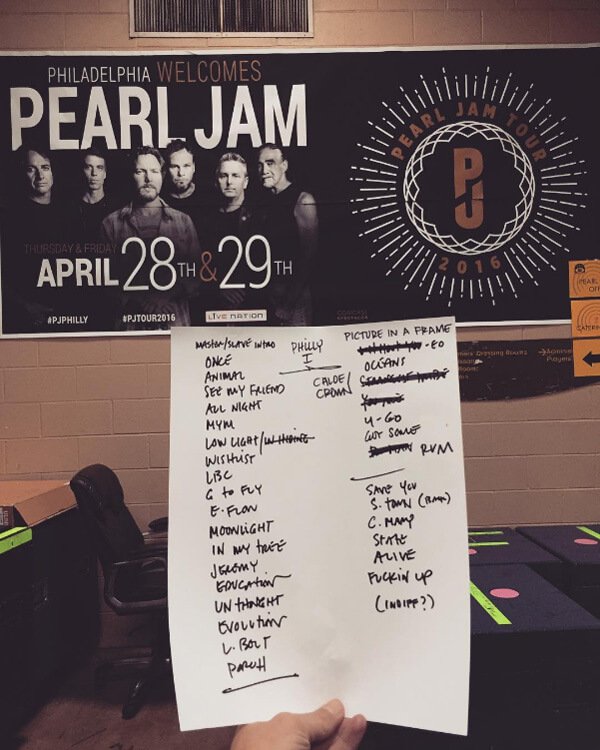 PHILADELPHIA WELCOMES
PEARL JAM
THURSDAY & FRIDAY
APRIL 28TH & 29TH
#PJPHILLY #PJTOUR2016 LIVE NATION
PEARL JAM TOUR
PJ
2016
PEARL
CATERI
Players
PHILLY
I
MASTER/SLAVE INTRO
ONCE
ANIMAL
SEE MY FRIEND
ALL NIGHT
MYM
LOW LIGHT/IN HIDING
WISHLIST
LBC
G to FLY
E. FLOW
MOONLIGHT
IN MY TREE
JEREMY
EDUCATION
UNTHOUGHT
EVOLUTION
L. BOLT
PORCH
PICTURE IN A FRAME
-EO
OCEANS
CALDE/
CROWN
U-GO
GOT SOME
RVM
SAVE YOU
S. TOWN
C. MAMP
STATE
ALIVE
FUCKIN UP
(INDIFF?)